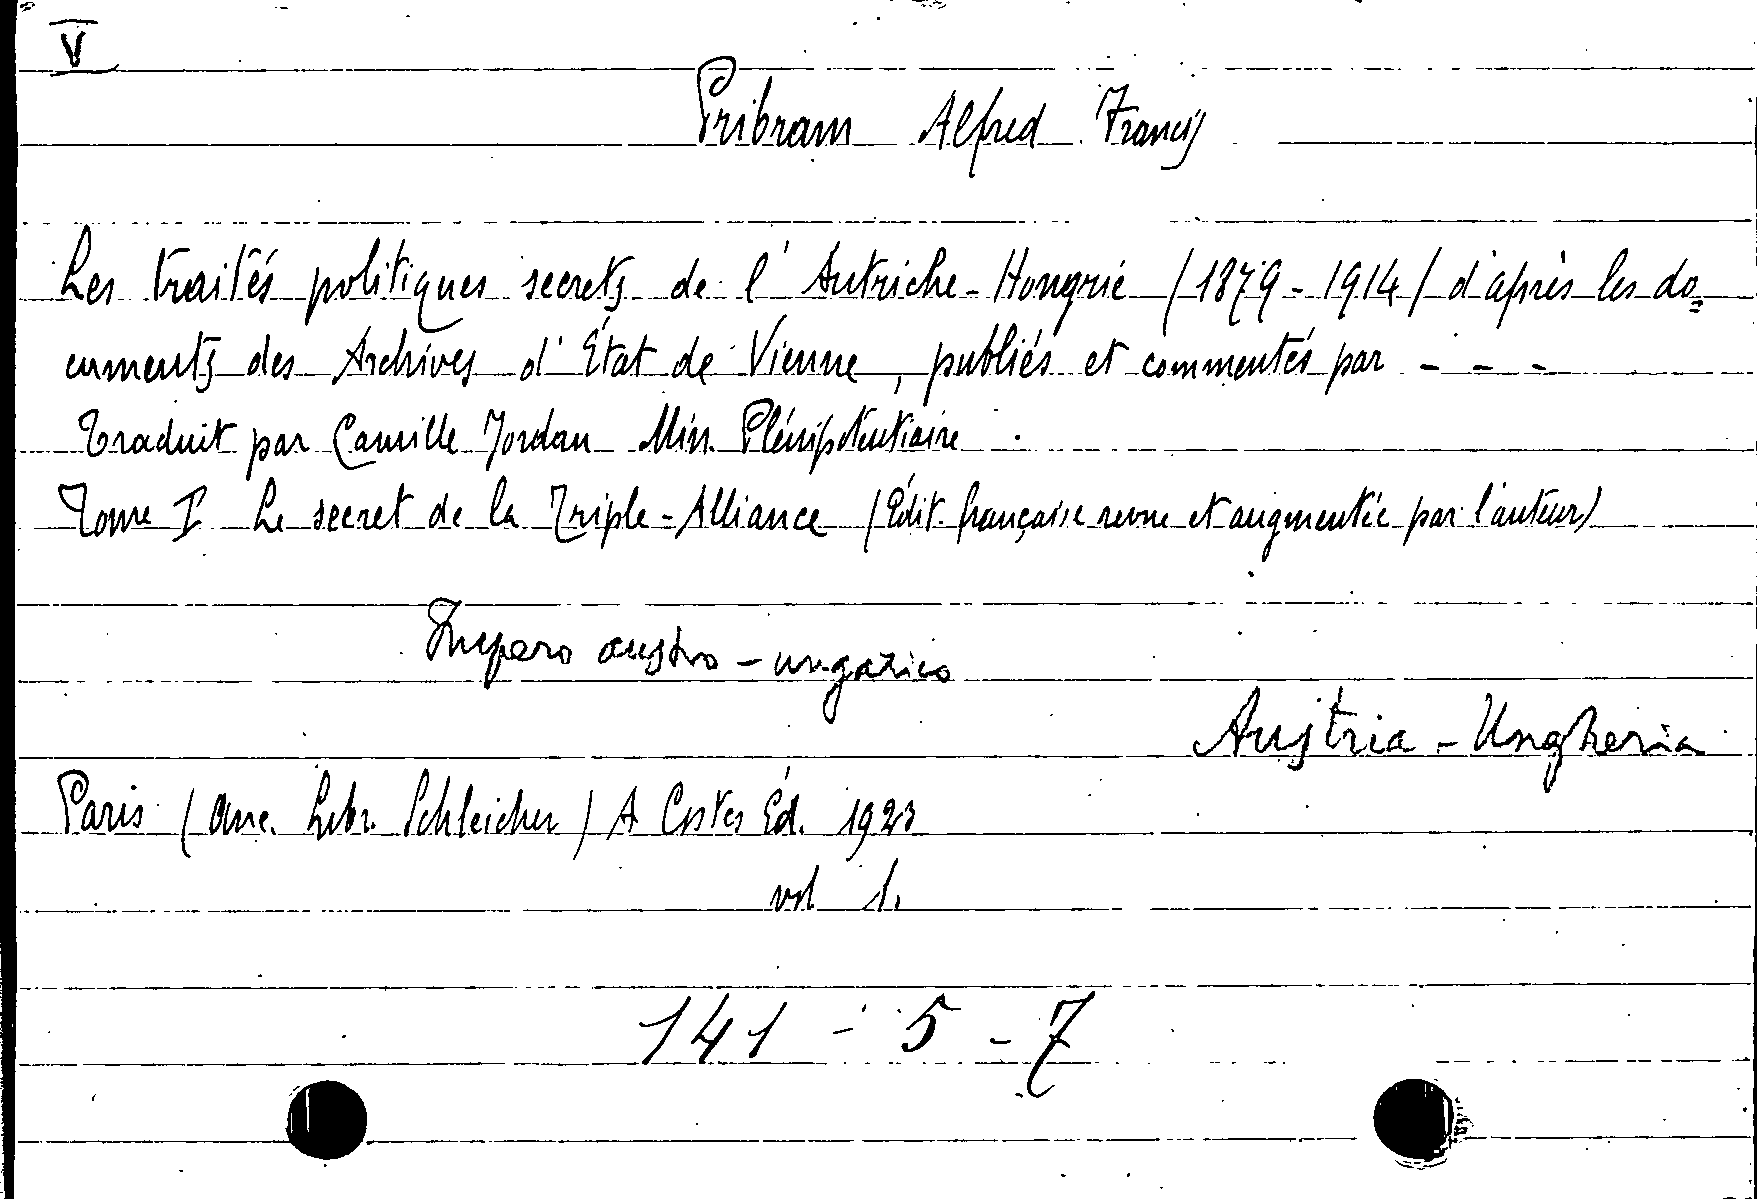 V
Pribram Alfred Francis
Les traités politiques secrets de l'Autriche-Hongrie (1879-1914) d'après les do=
cuments des Archives d'État de Vienne, publiés et commentés par - - -
Traduit par Camille Jordan Min. Plénipotentiaire.
Tome I Le secret de la Triple-Alliance (Édit. française revue et augmentée par l'auteur)
Impero austro-ungarico
Austria-Ungheria
Paris (Anc. Libr. Schleicher) A Costes Éd. 1923
vol 1.
141 - 5 - 7